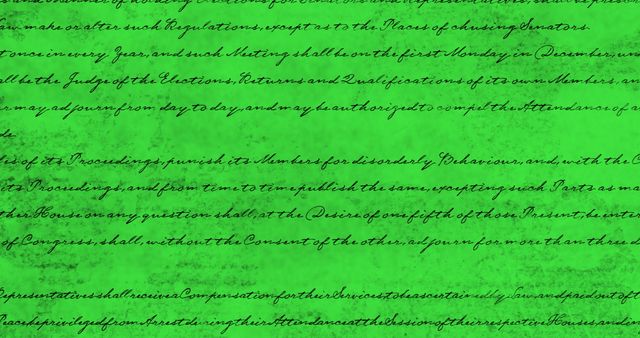 aw make or alter such Regulations, except as to the Places of chusing Senators.
t once in every Year, and such Meeting shall be on the first Monday in December, un
ll be the Judge of the Elections, Returns and Qualifications of its own Members, an
r may adjourn from day to day, and may be authorized to compel the Attendance of a
de.
les of its Proceedings, punish its Members for disorderly Behaviour, and, with the C
its Proceedings, and from time to time publish the same, excepting such Parts as ma
ther House on any question shall, at the Desire of one fifth of those Present, be enter
of Congress, shall, without the Consent of the other, adjourn for more than three d
Representatives shall receive a Compensation for their Services to be ascertained by Law and paid out of t
Peace be privileged from Arrest during their Attendance at the Session of their respective Houses and in